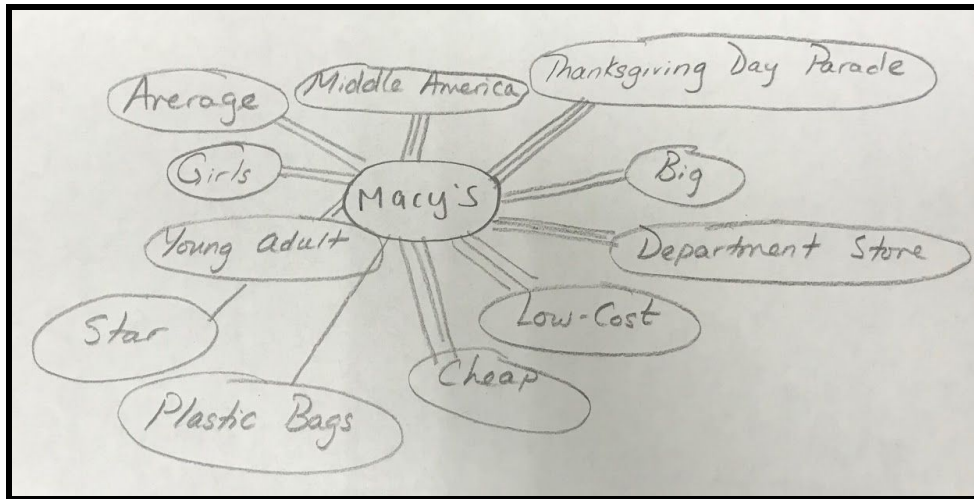 Average
Middle America
Thanksgiving Day Parade
Girls
Macy's
Big
Young adult
Department Store
Star
Low-Cost
Cheap
Plastic Bags